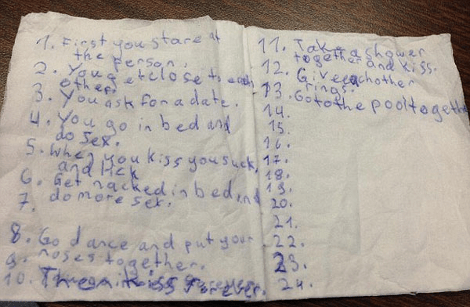 1. First you stare at
the person.
2. You get close to each
others
3. You ask for a date.
4. You go in bed and
do sex.
5. When you kiss you suck,
and lick
6. Get nacked in bed and
7. do more sex.
8. Go dance and put your
9. noses together.
10. forever.
11. Take a shower
together and kiss.
12. Give eachother
rings.
13. Go to the pool together
14.
15.
16.
17.
18.
19.
20.
21.
22.
23.
24.